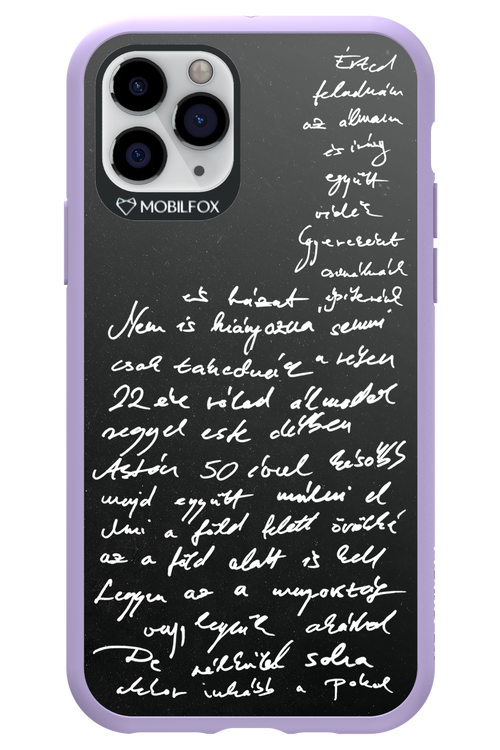 MOBILFOX
Érted
feladnám
az álmaim
és így
együtt
vidék
Gyerekeket
csinálnánk
és házat építenénk
Nem is hiányozna semmi
csak tahcsi a réten
22 éve rólad álmodok
reggel este délben
Aztán 50 évvel később
majd együtt múlni el
Ami a föld felett örökké
az a föld alatt is kell
Legyen az a mennyország
vagy legyünk akárhol
De nélküled soha
akkor inkább a Pokol